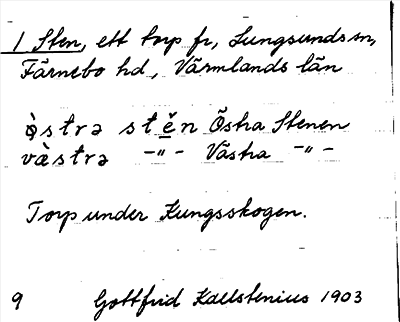 1 Sten, ett torp fr, Lungsunds sn,
Färnebo hd, Värmlands län
östra stēn Östra Stenen
västra —"— Västra —"—
Torp under Kungsskogen.
9 Gottfrid Kallstenius 1903